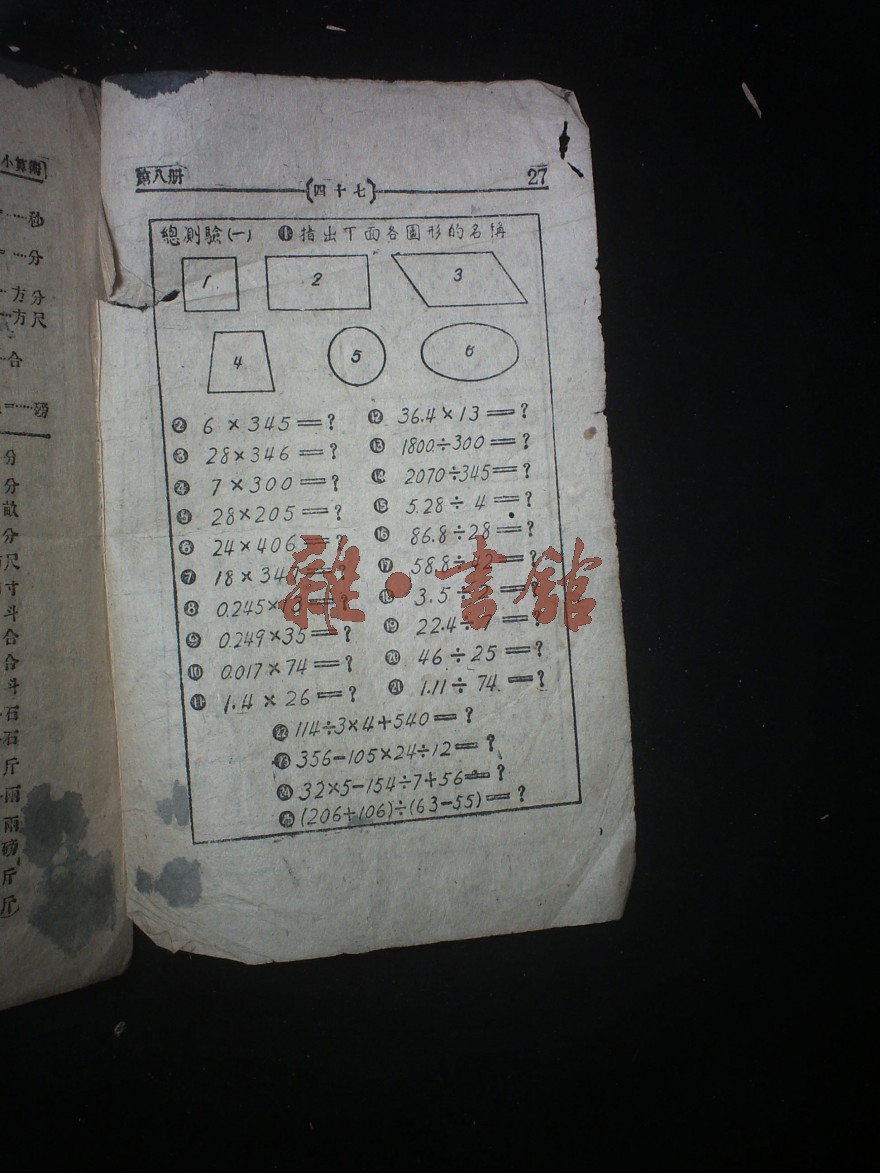 小算術
……秒
…分
…方分
…方尺
…合
…磅
分
分
畝
分
尺
寸
斗
合
合
斗
石
石
斤
兩
兩
磅
斤
斤
第八册
(四十七)
27
總測驗(一) ❶指出下面各圖形的名稱
1 2 3
4 5 6
❷ 6 × 345 = ?
❸ 28×346 = ?
❹ 7 × 300 = ?
❺ 28×205 = ?
❻ 24×406 = ?
❼ 18 × = ?
❽ 0.245× = ?
❾ 0.249×35 = ?
❿ 0.017×74 = ?
⓫ 1.4 × 26 = ?
⓬ 36.4×13 = ?
⓭ 1800÷300 = ?
⓮ 2070÷345 = ?
⓯ 5.28 ÷ 4 = ?
⓰ 86.8÷28 = ?
⓱ 58.8÷42 = ?
⓲ 3.5 ÷ = ?
⓳ 22.4÷ = ?
⓴ 46 ÷ 25 = ?
㉑ 1.11 ÷ 74 = ?
㉒ 114÷3×4+540 = ?
㉓ 356-105×24÷12 = ?
㉔ 32×5-154÷7+56 = ?
㉕ (206+106)÷(63-55) = ?
雜·書館